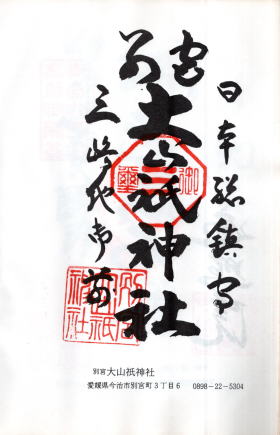 日本総鎮守
別宮
大山祇神社
三嶋地御前
別宮大山祇神社
別宮 大山祇神社
愛媛県今治市別宮町3丁目6 0898-22-5304